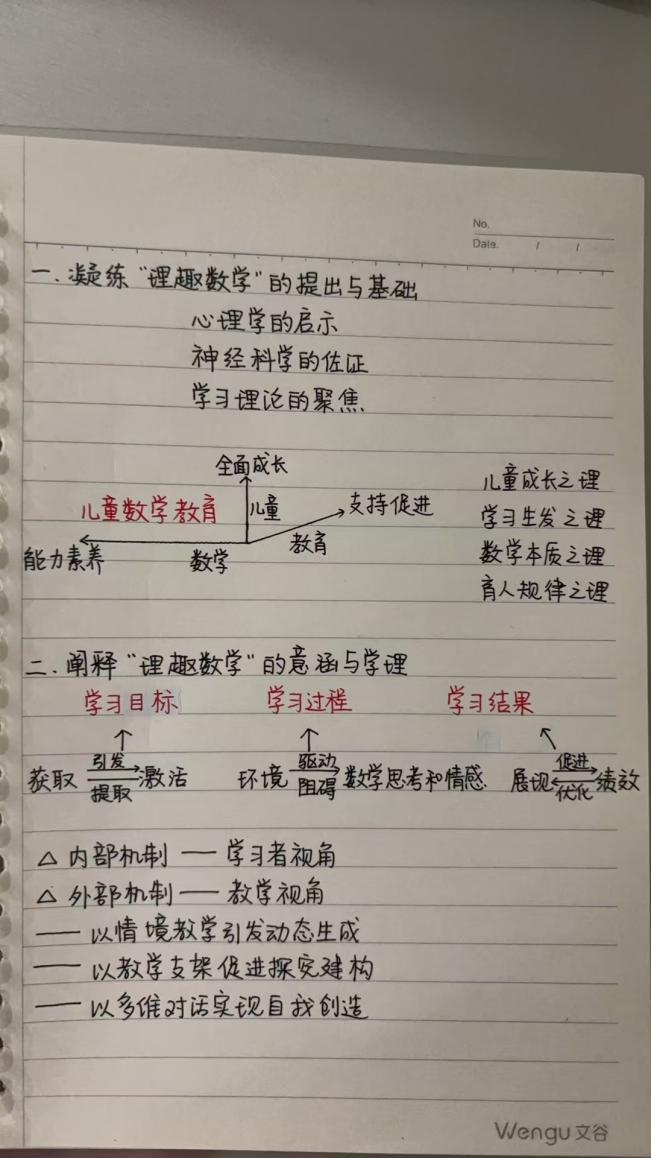 No.
Date. / /
一.凝练"理趣数学"的提出与基础
心理学的启示
神经科学的佐证
学习理论的聚焦
全面成长
儿童数学教育 儿童 支持促进
能力素养 数学 教育
儿童成长之理
学习生发之理
数学本质之理
育人规律之理
二.阐释"理趣数学"的意涵与学理
学习目标 学习过程 学习结果
获取 引发 提取 激活 环境 驱动 阻碍 数学思考和情感. 展现 促进 优化 绩效
△ 内部机制 — 学习者视角
△ 外部机制 — 教学视角
— 以情境教学引发动态生成
— 以教学支架促进探究建构
— 以多维对话实现自我创造
Wengu 文谷